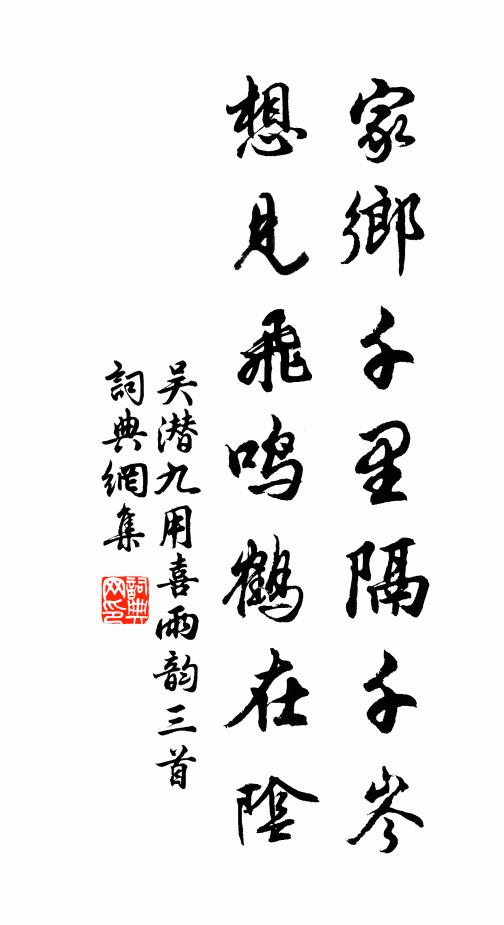 家鄉千里隔千岑
想見飛鳴鶴在陰
吴潜九用喜雨韵三首
詞典網集
詞典網印